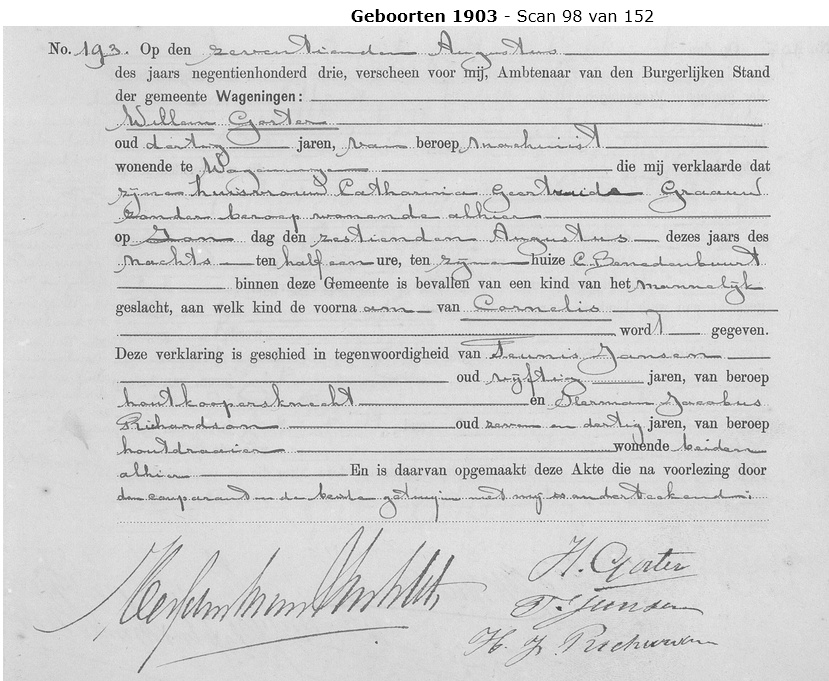 Geboorten 1903 - Scan 98 van 152
No. 193. Op den zeventienden Augustus
des jaars negentienhonderd drie, verscheen voor mij, Ambtenaar van den Burgerlijken Stand
der gemeente Wageningen:
Willem Gorter
oud dertig jaren, van beroep machinist
wonende te Wageningen die mij verklaarde dat
zijne huisvrouw Catharina Geertruida Graauw
zonder beroep wonende alhier
op Zon dag den zestienden Augustus dezes jaars des
nachts ten half een ure, ten zijne huize C. Benedenbuurt
binnen deze Gemeente is bevallen van een kind van het mannelijk
geslacht, aan welk kind de voorna am van Cornelis
wordt gegeven.
Deze verklaring is geschied in tegenwoordigheid van Teunis Jansen
oud vijftig jaren, van beroep
houtkoopersknecht en Herman Jacobus
Richardson oud zeven en dertig jaren, van beroep
houtdraaier wonende beiden
alhier En is daarvan opgemaakt deze Akte die na voorlezing door
den comparant en de beide getuigen met mij is onderteekend:
H. Gorter
T. Jansen
H. J.